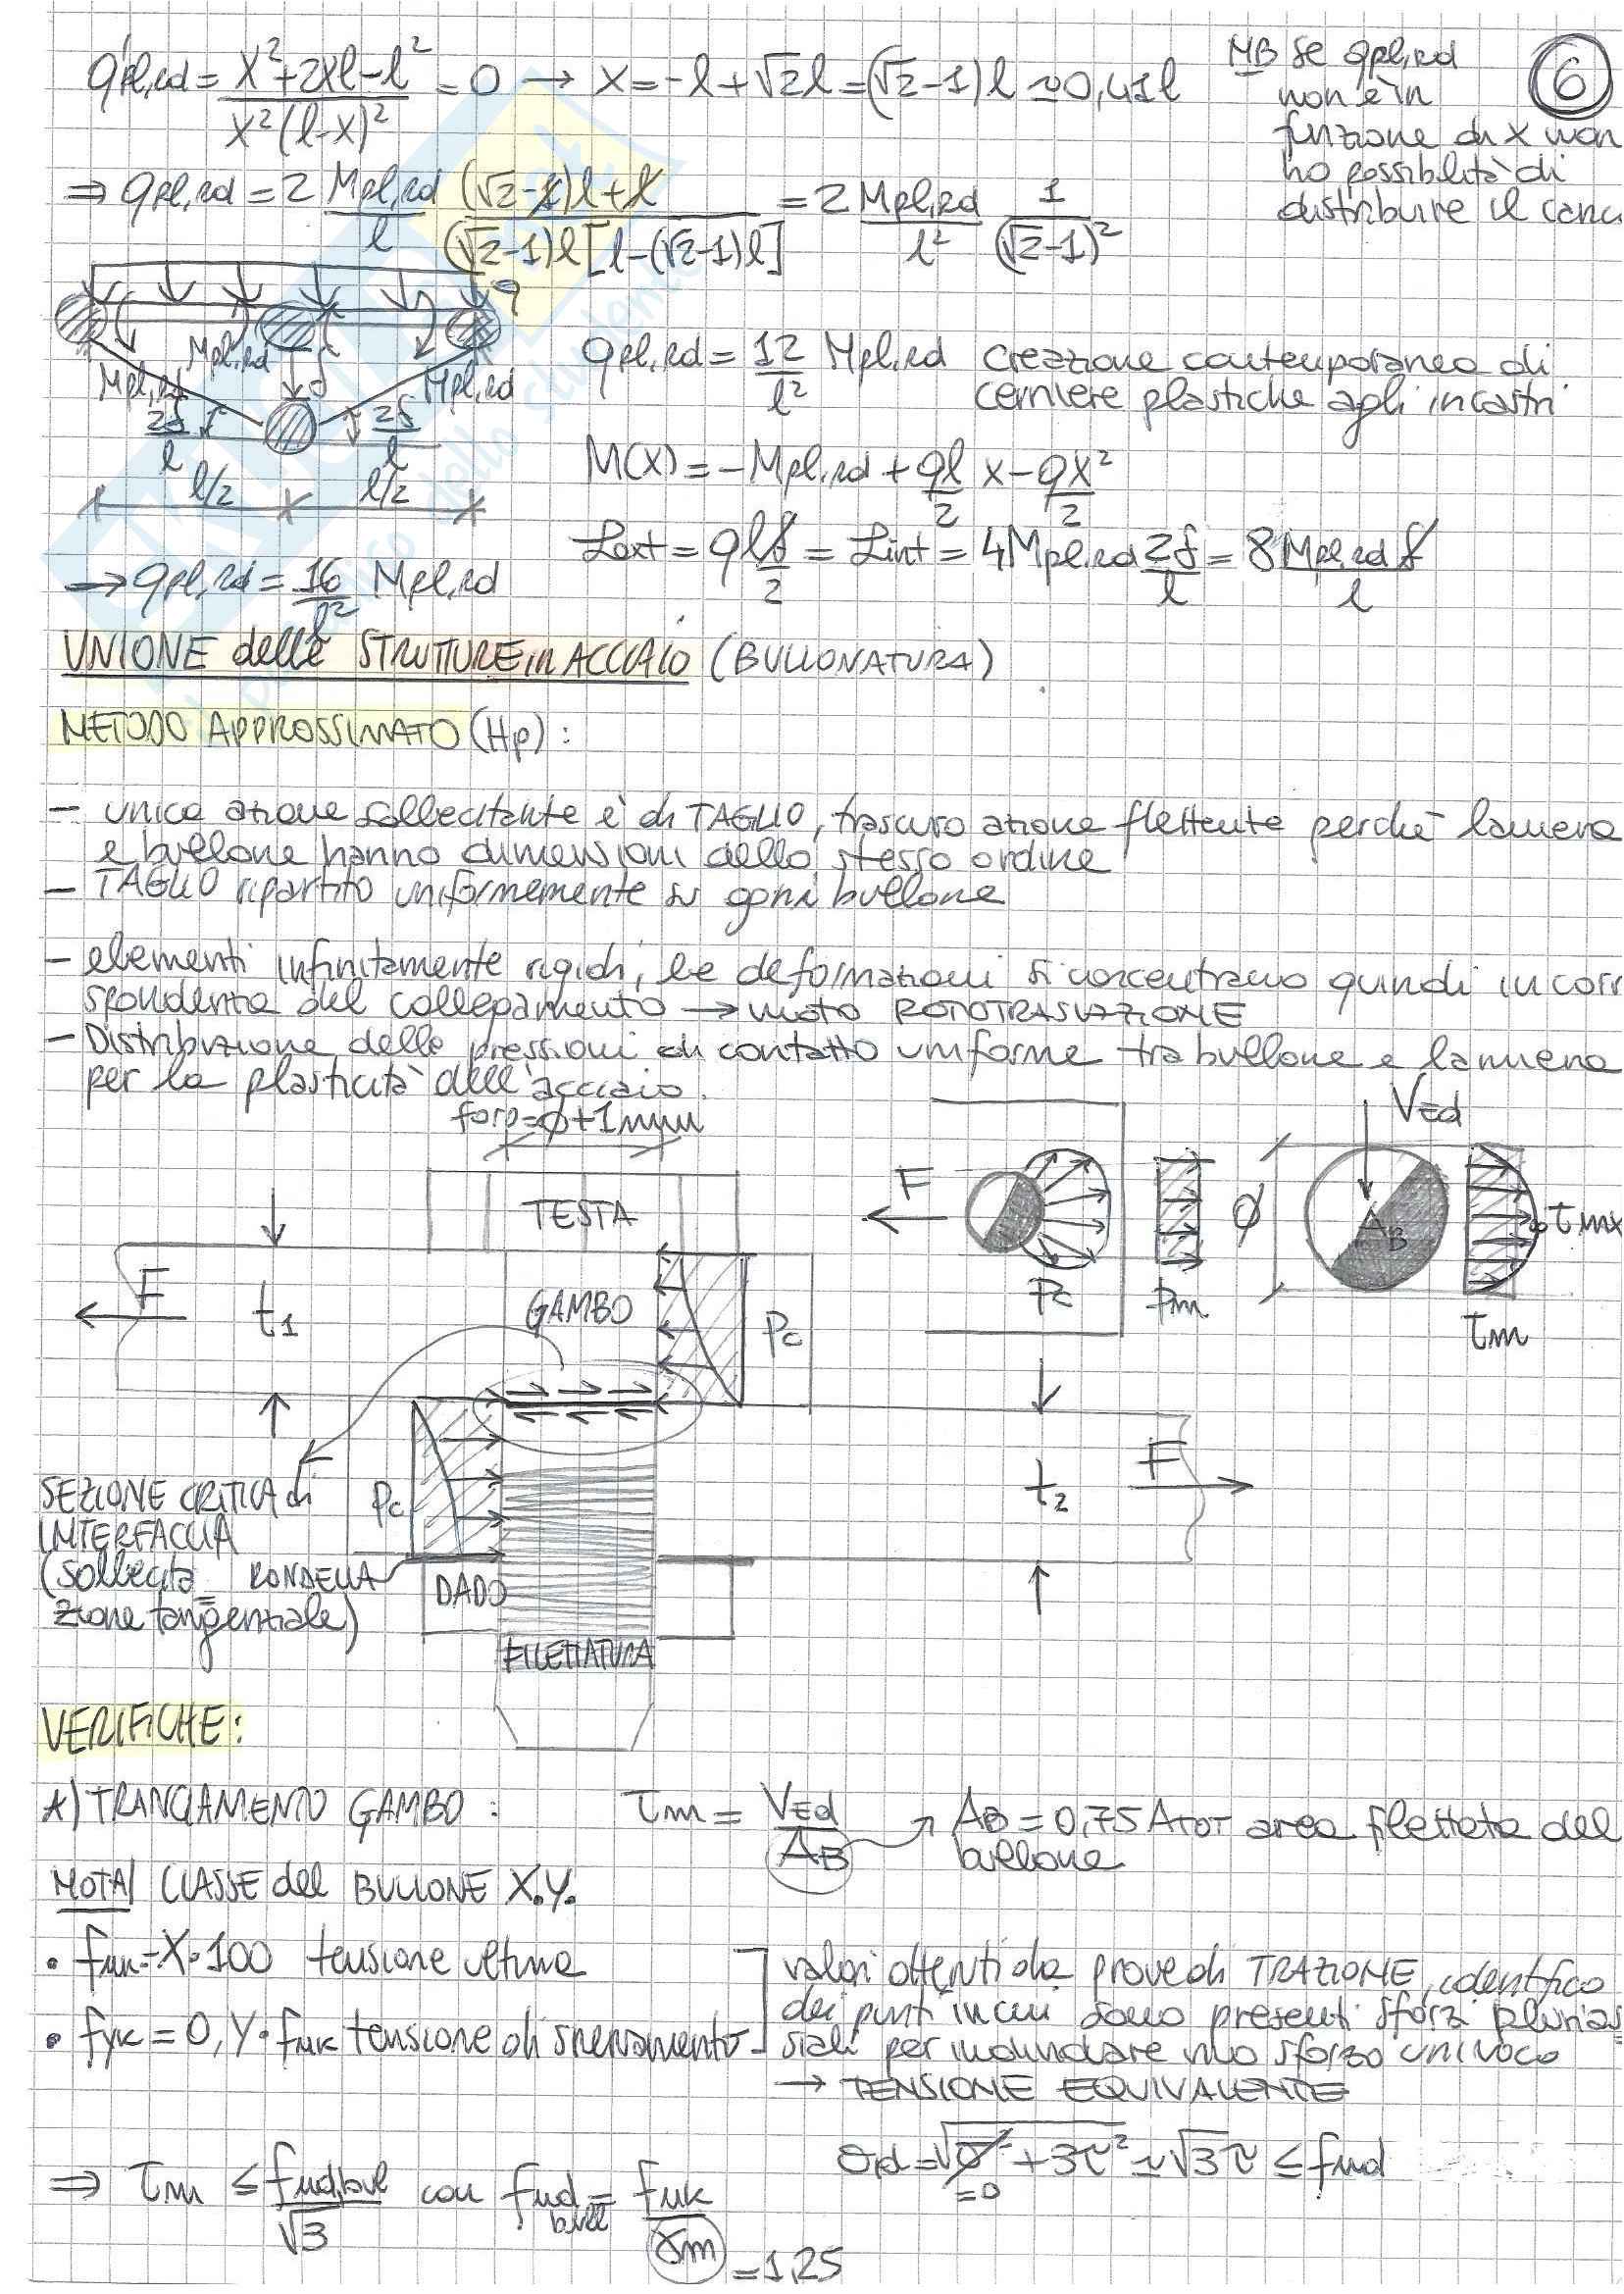 q'pl,rd = x²+2xl-l² / x²(l-x)² = 0 → x = -l+√2l = (√2-1)l ≃ 0,41l
NB se qpl,rd
non è in
funzione di x non
ho possibilità di
distribuire il
6
⇒ qpl,rd = 2 Mpl,rd / l (√2-1)l+l / (√2-1)l[l-(√2-1)l] = 2 Mpl,rd / l² 1 / (√2-1)²
q
Mpl,rd
Mpl,rd
Mpl,rd
δ
2δ/l
2δ/l
l/2
l/2
qpl,rd = 12/l² Mpl,rd creazione contemporanea di
cerniere plastiche agli incastri
M(x) = -Mpl,rd + ql/2 x - qx²/2
Lext = qlδ/2 = Lint = 4Mpl,rd 2δ/l = 8Mpl,rd δ/l
→ qpl,rd = 16/l² Mpl,rd
UNIONE delle STRUTTURE in ACCIAIO (BULLONATURA)
METODO APPROSSIMATO (Hp):
- unica azione sollecitante è di TAGLIO, trascuro azione flettente perchè lamiera
e bullone hanno dimensioni dello stesso ordine
- TAGLIO ripartito uniformemente su ogni bullone
- elementi infinitamente rigidi, le deformazioni si concentrano quindi in corri
spondenza del collegamento → moto ROTOTRASLAZIONE
- Distribuzione delle pressioni di contatto uniforme tra bullone e lamiera
per la plasticità dell'acciaio.
foro=φ+1mm
TESTA
GAMBO
F
t1
Pc
F
Pc
Pm
φ
VEd
AB
τmx
τm
Pc
t2
F
SEZIONE CRITICA di
INTERFACCIA
(sollecita=
zione tangenziale)
RONDELLA
DADO
FILETTATURA
VERIFICHE:
A) TRANCIAMENTO GAMBO: τm = VEd / AB → AB = 0,75 ATOT area filettata del
bullone
NOTA/ CLASSE del BULLONE X.Y.
• fuk=X·100 tensione ultima
• fyk = 0,Y·fuk tensione di snervamento
valori ottenuti da prove di TRAZIONE, identifico
dei punti in cui sono presenti sforzi plurias=
siali per individuare uno sforzo univoco
→ TENSIONE EQUIVALENTE
σid = √σ²+3τ² ≃ √3τ ≤ fud
=0
⇒ τm ≤ fud,bul / √3 con fud bull = fuk / γm = 1,25